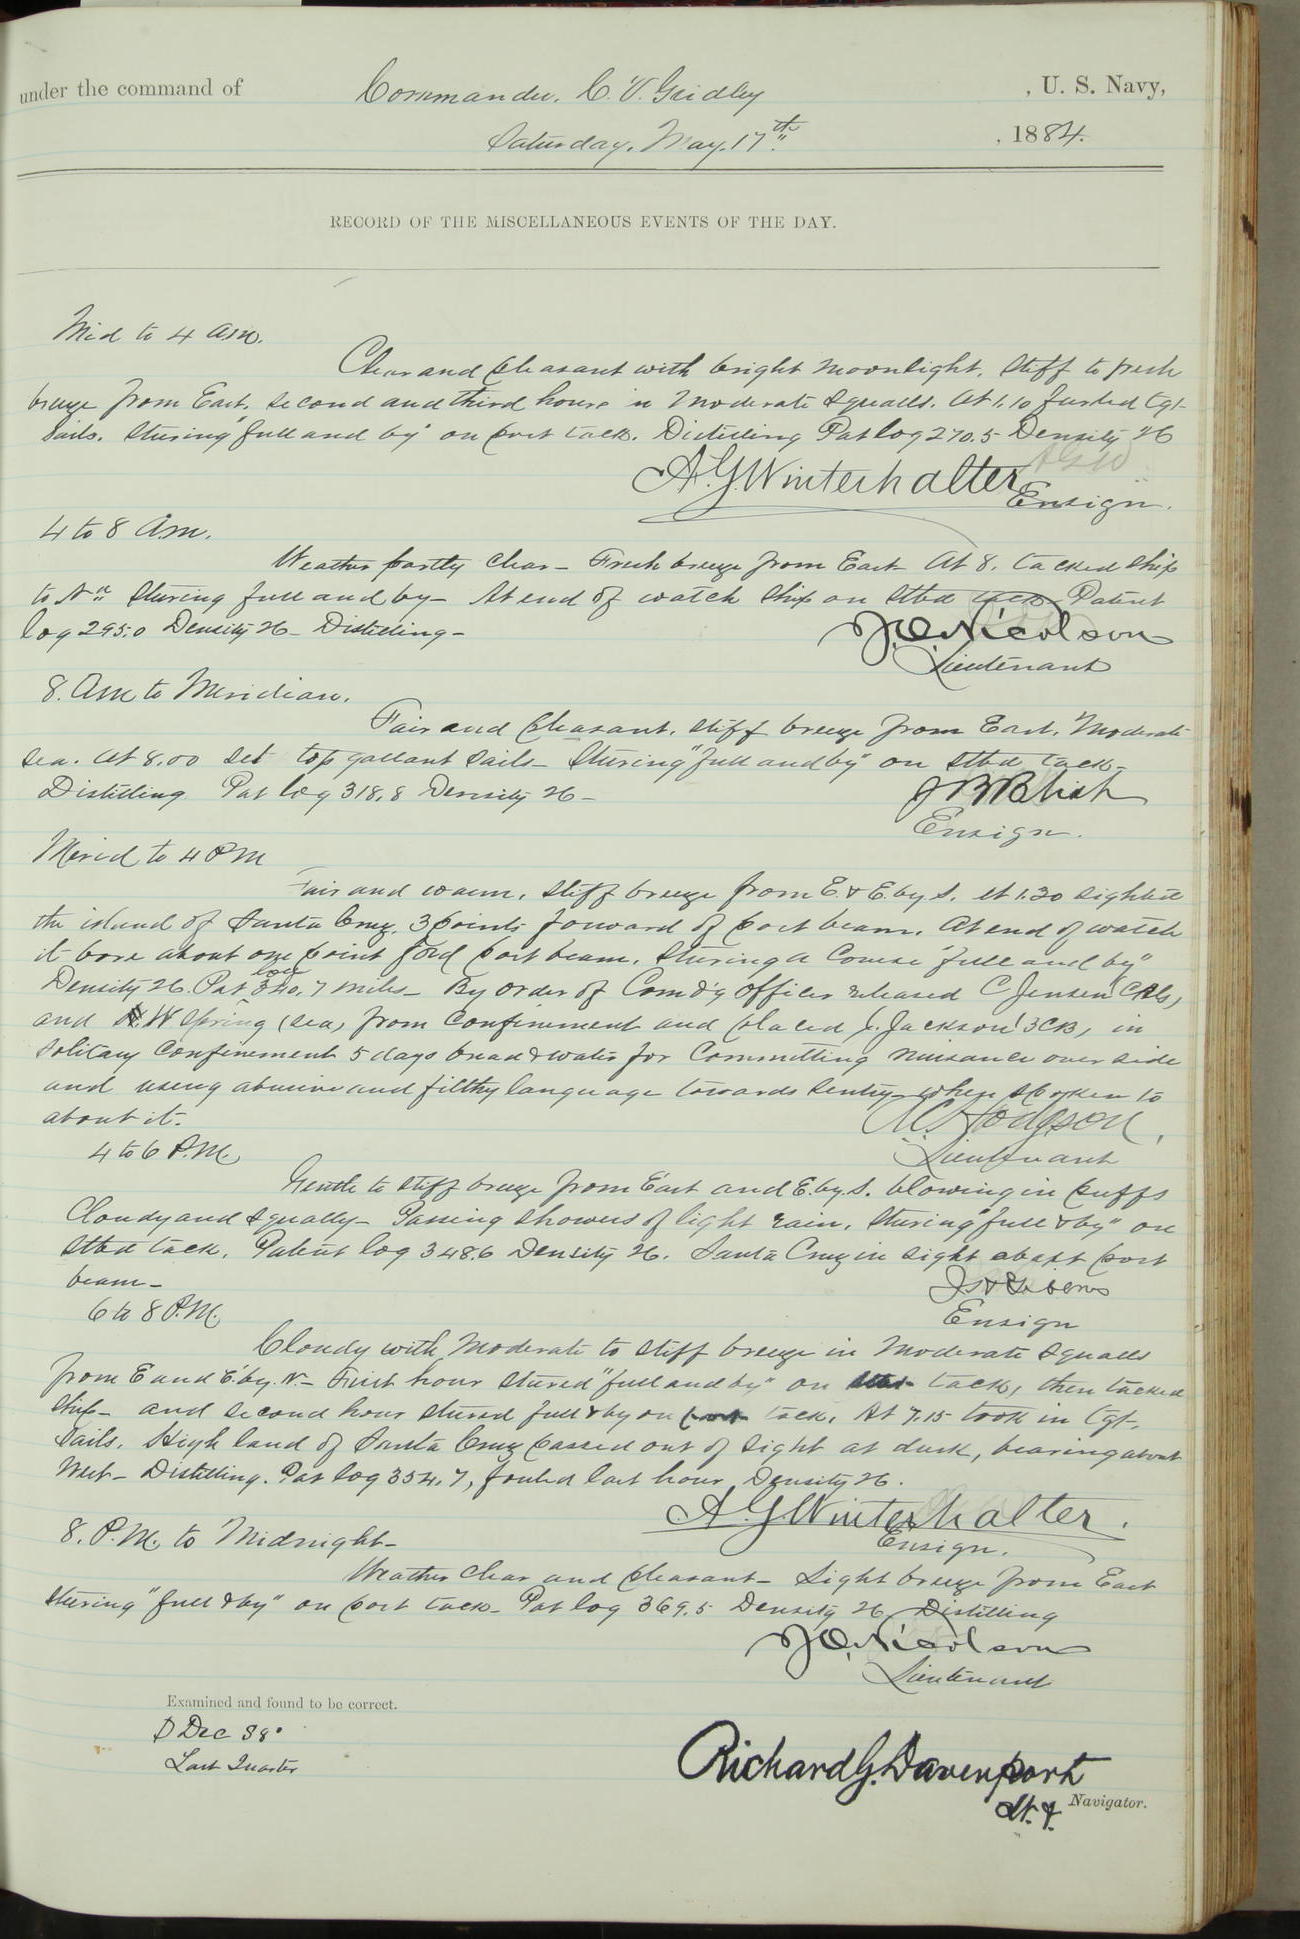 under the command of Commander. C. V. Gridley , U. S. Navy,
Saturday, May. 17th , 1884.
RECORD OF THE MISCELLANEOUS EVENTS OF THE DAY.
Mid to 4 am.
Clear and pleasant with bright moonlight. Stiff to fresh
breeze from East, second and third hours in moderate squalls. At 1.10 furled tgt
sails. Steering "full and by" on port tack. Distilling Pat log 270.5 Density 26
A. G. Winterhalter
Ensign.
4 to 8 am.
Weather partly clear - Fresh breeze from East At 8. tacked ship
to Nd Steering full and by - At end of watch ship on stbd tack - Patent
log 295.0 Density 26 - Distilling -
J. O. Nicolson
Lieutenant
8. am to Meridian.
Fair and pleasant. Stiff breeze from East. Moderate
sea. At 8.00 set top gallant sails - Steering "full and by" on stbd tack -
Distilling Pat log 318.8 Density 26 -
J B Blish
Ensign.
Merid to 4 PM
Fair and warm. Stiff breeze from E. & E. by S. At 1.30 sighted
the island of Santa Cruz. 3 points forward of port beam. At end of watch
it bore about one point for'd port beam. Steering a course "full and by"
Density 26. Pat log 340.7 miles - By order of Com'd'g officer released C Jensen
and W Spring (sea) from confinement and placed J. Jackson 3CB, in
solitary confinement 5 days bread & water for committing nuisance over side
and using abusive and filthy language towards sentry when spoken to
about it.
A C Hodgson,
Lieutenant
4 to 6 P.M.
Gentle to stiff breeze from East and E. by S. blowing in puffs
Cloudy and squally - Passing showers of light rain. Steering "full & by" on
stbd tack. Patent log 348.6 Density 26. Santa Cruz in sight abaft port
beam -
Ensign
6 to 8 P.M.
Cloudy with moderate to stiff breeze in moderate squalls
from E and E. by. N - First hour steered "full and by" on stbd tack, then tacked
ship - and second hour steered full & by on port tack. At 7.15 took in tgt.
sails. High land of Santa Cruz passed out of sight at dusk, bearing about
West - Distilling. Pat log 354.7, fouled last hour Density 26.
A. G. Winterhalter.
Ensign.
8. P.M. to Midnight -
Weather clear and pleasant - Light breeze from East
Steering "full & by" on port tack - Pat log 369.5 Density 26 Distilling
J. O. Nicolson
Lieutenant
Examined and found to be correct.
D Dec 38°
Last Quarter
Richard G. Davenport
Lt. &
Navigator.